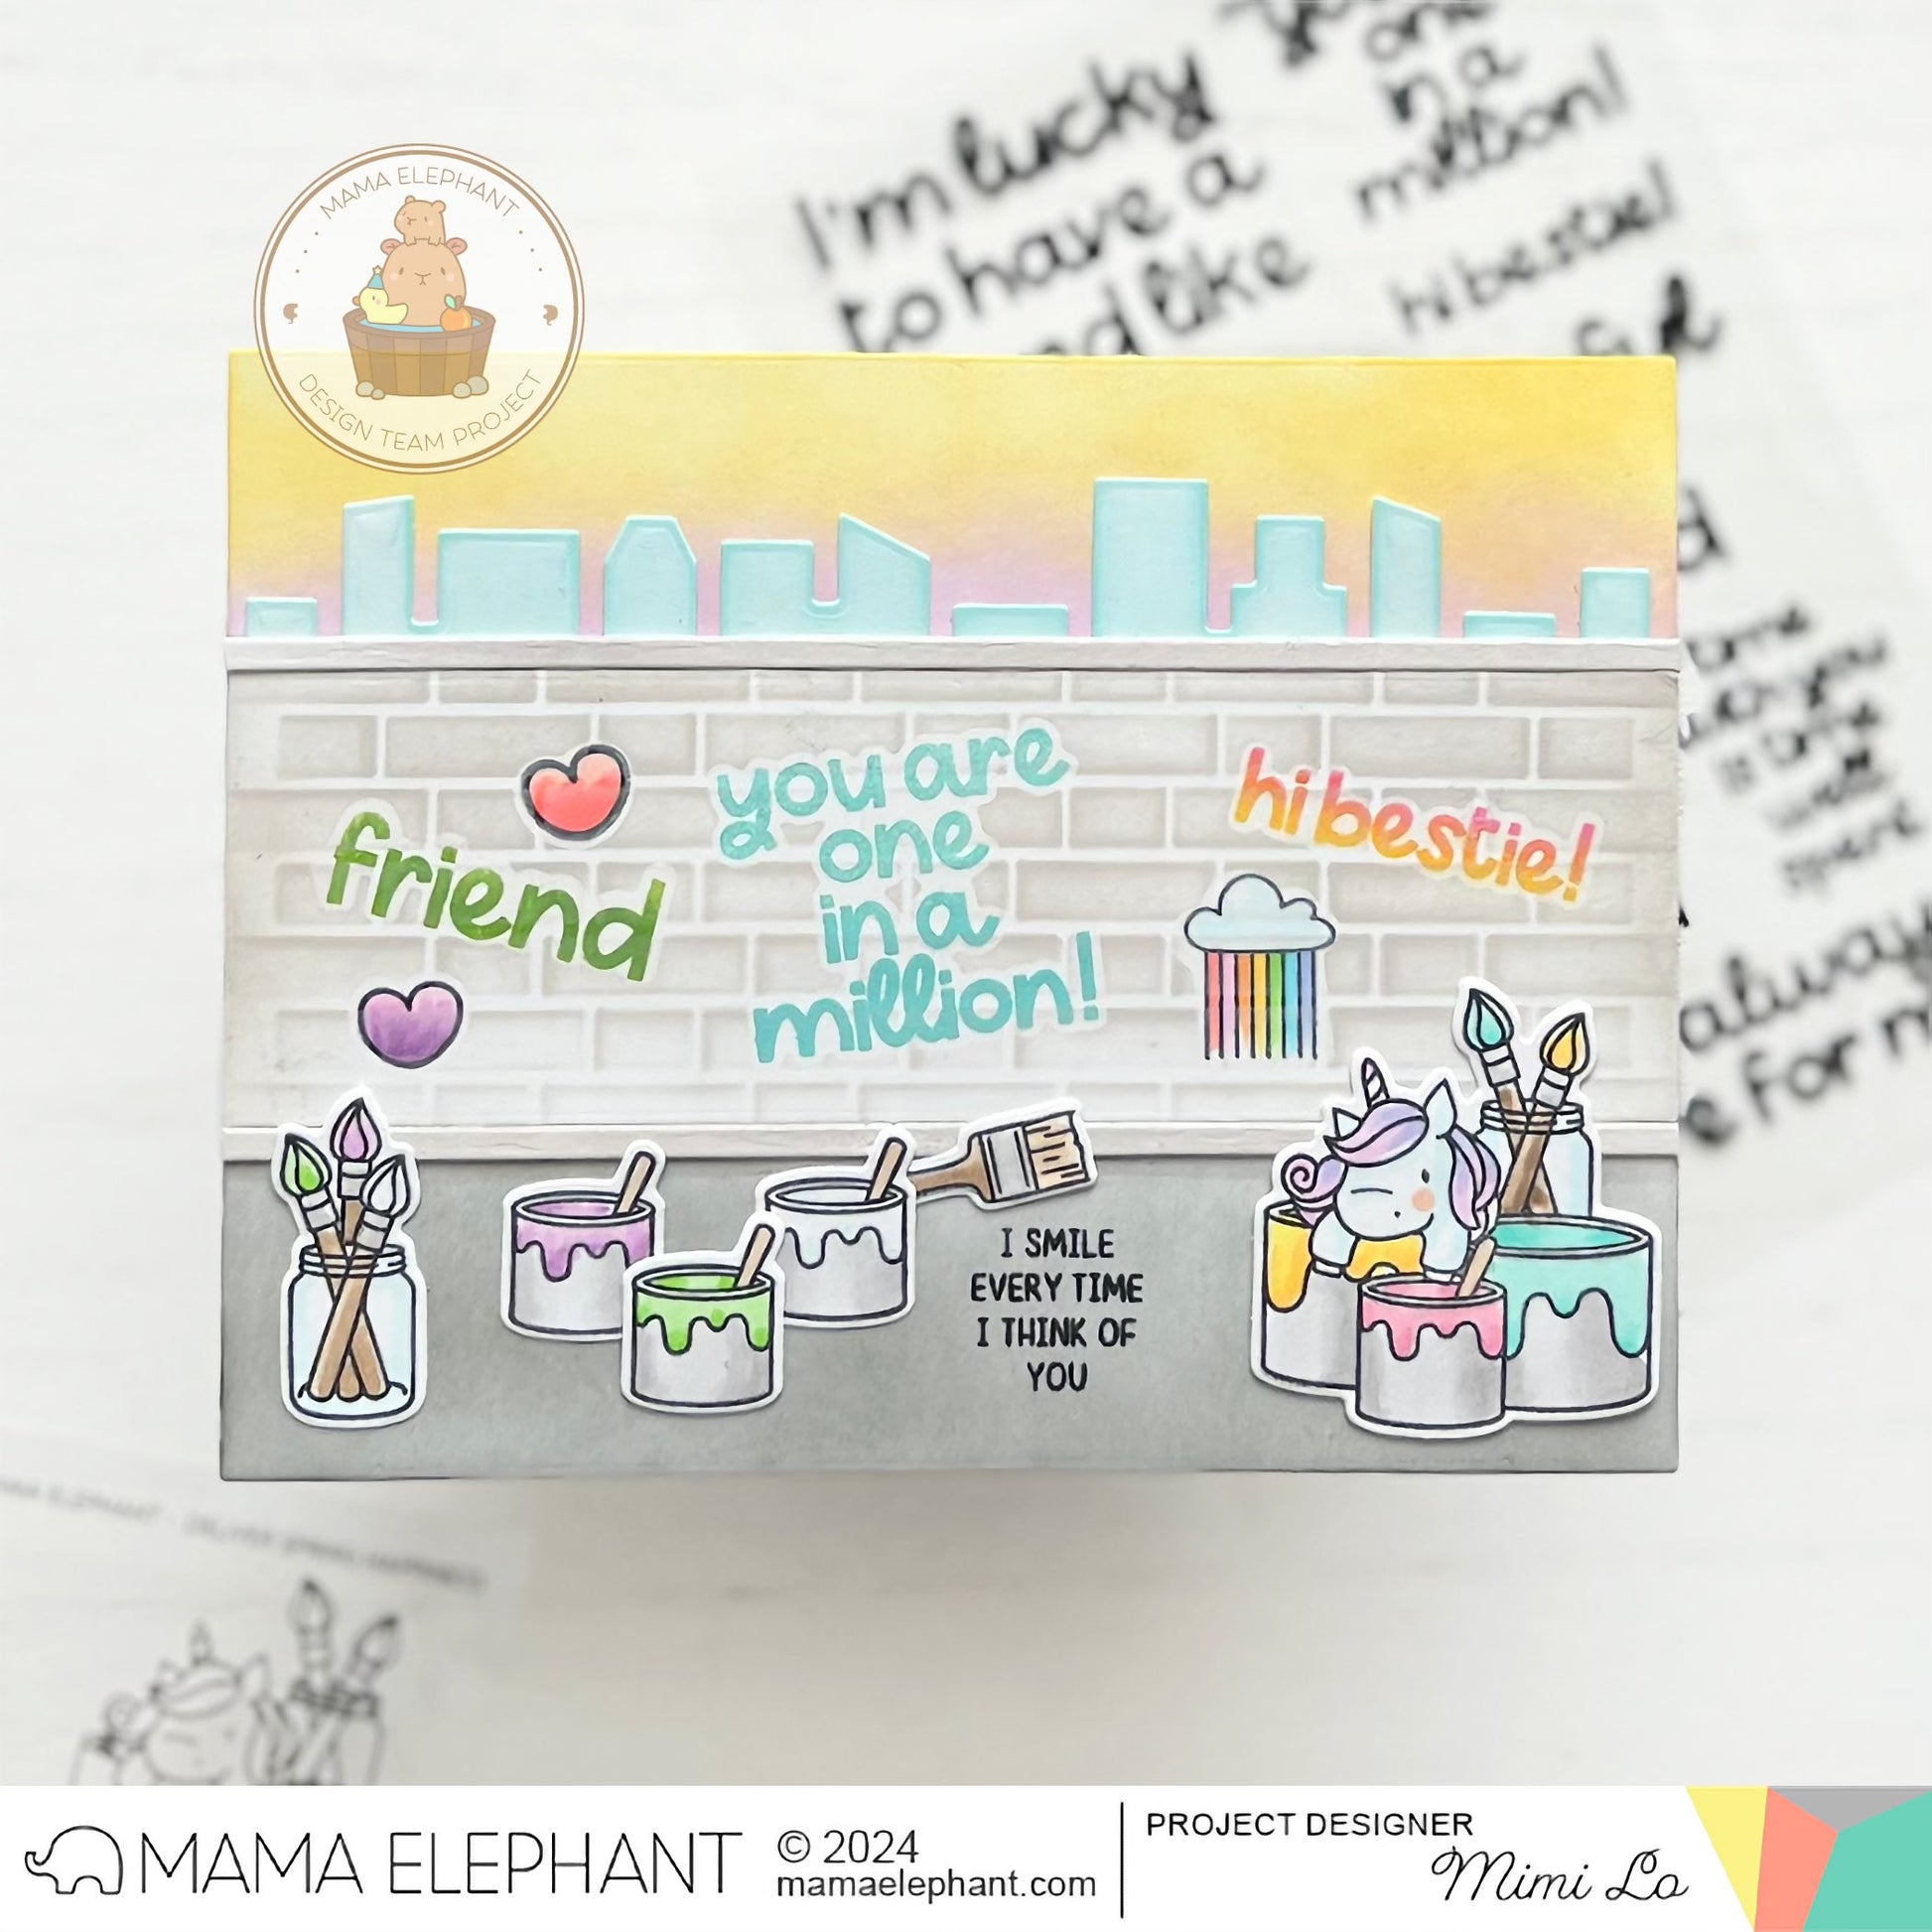 I'm lucky
to have a
like
one
in a
million!
hi bestie!
MAMA ELEPHANT
DESIGN TEAM PROJECT
friend
you are
one
in a
million!
hi bestie!
I SMILE
EVERY TIME
I THINK OF
YOU
always
for
MAMA ELEPHANT
© 2024
mamaelephant.com
PROJECT DESIGNER
Mimi Lo